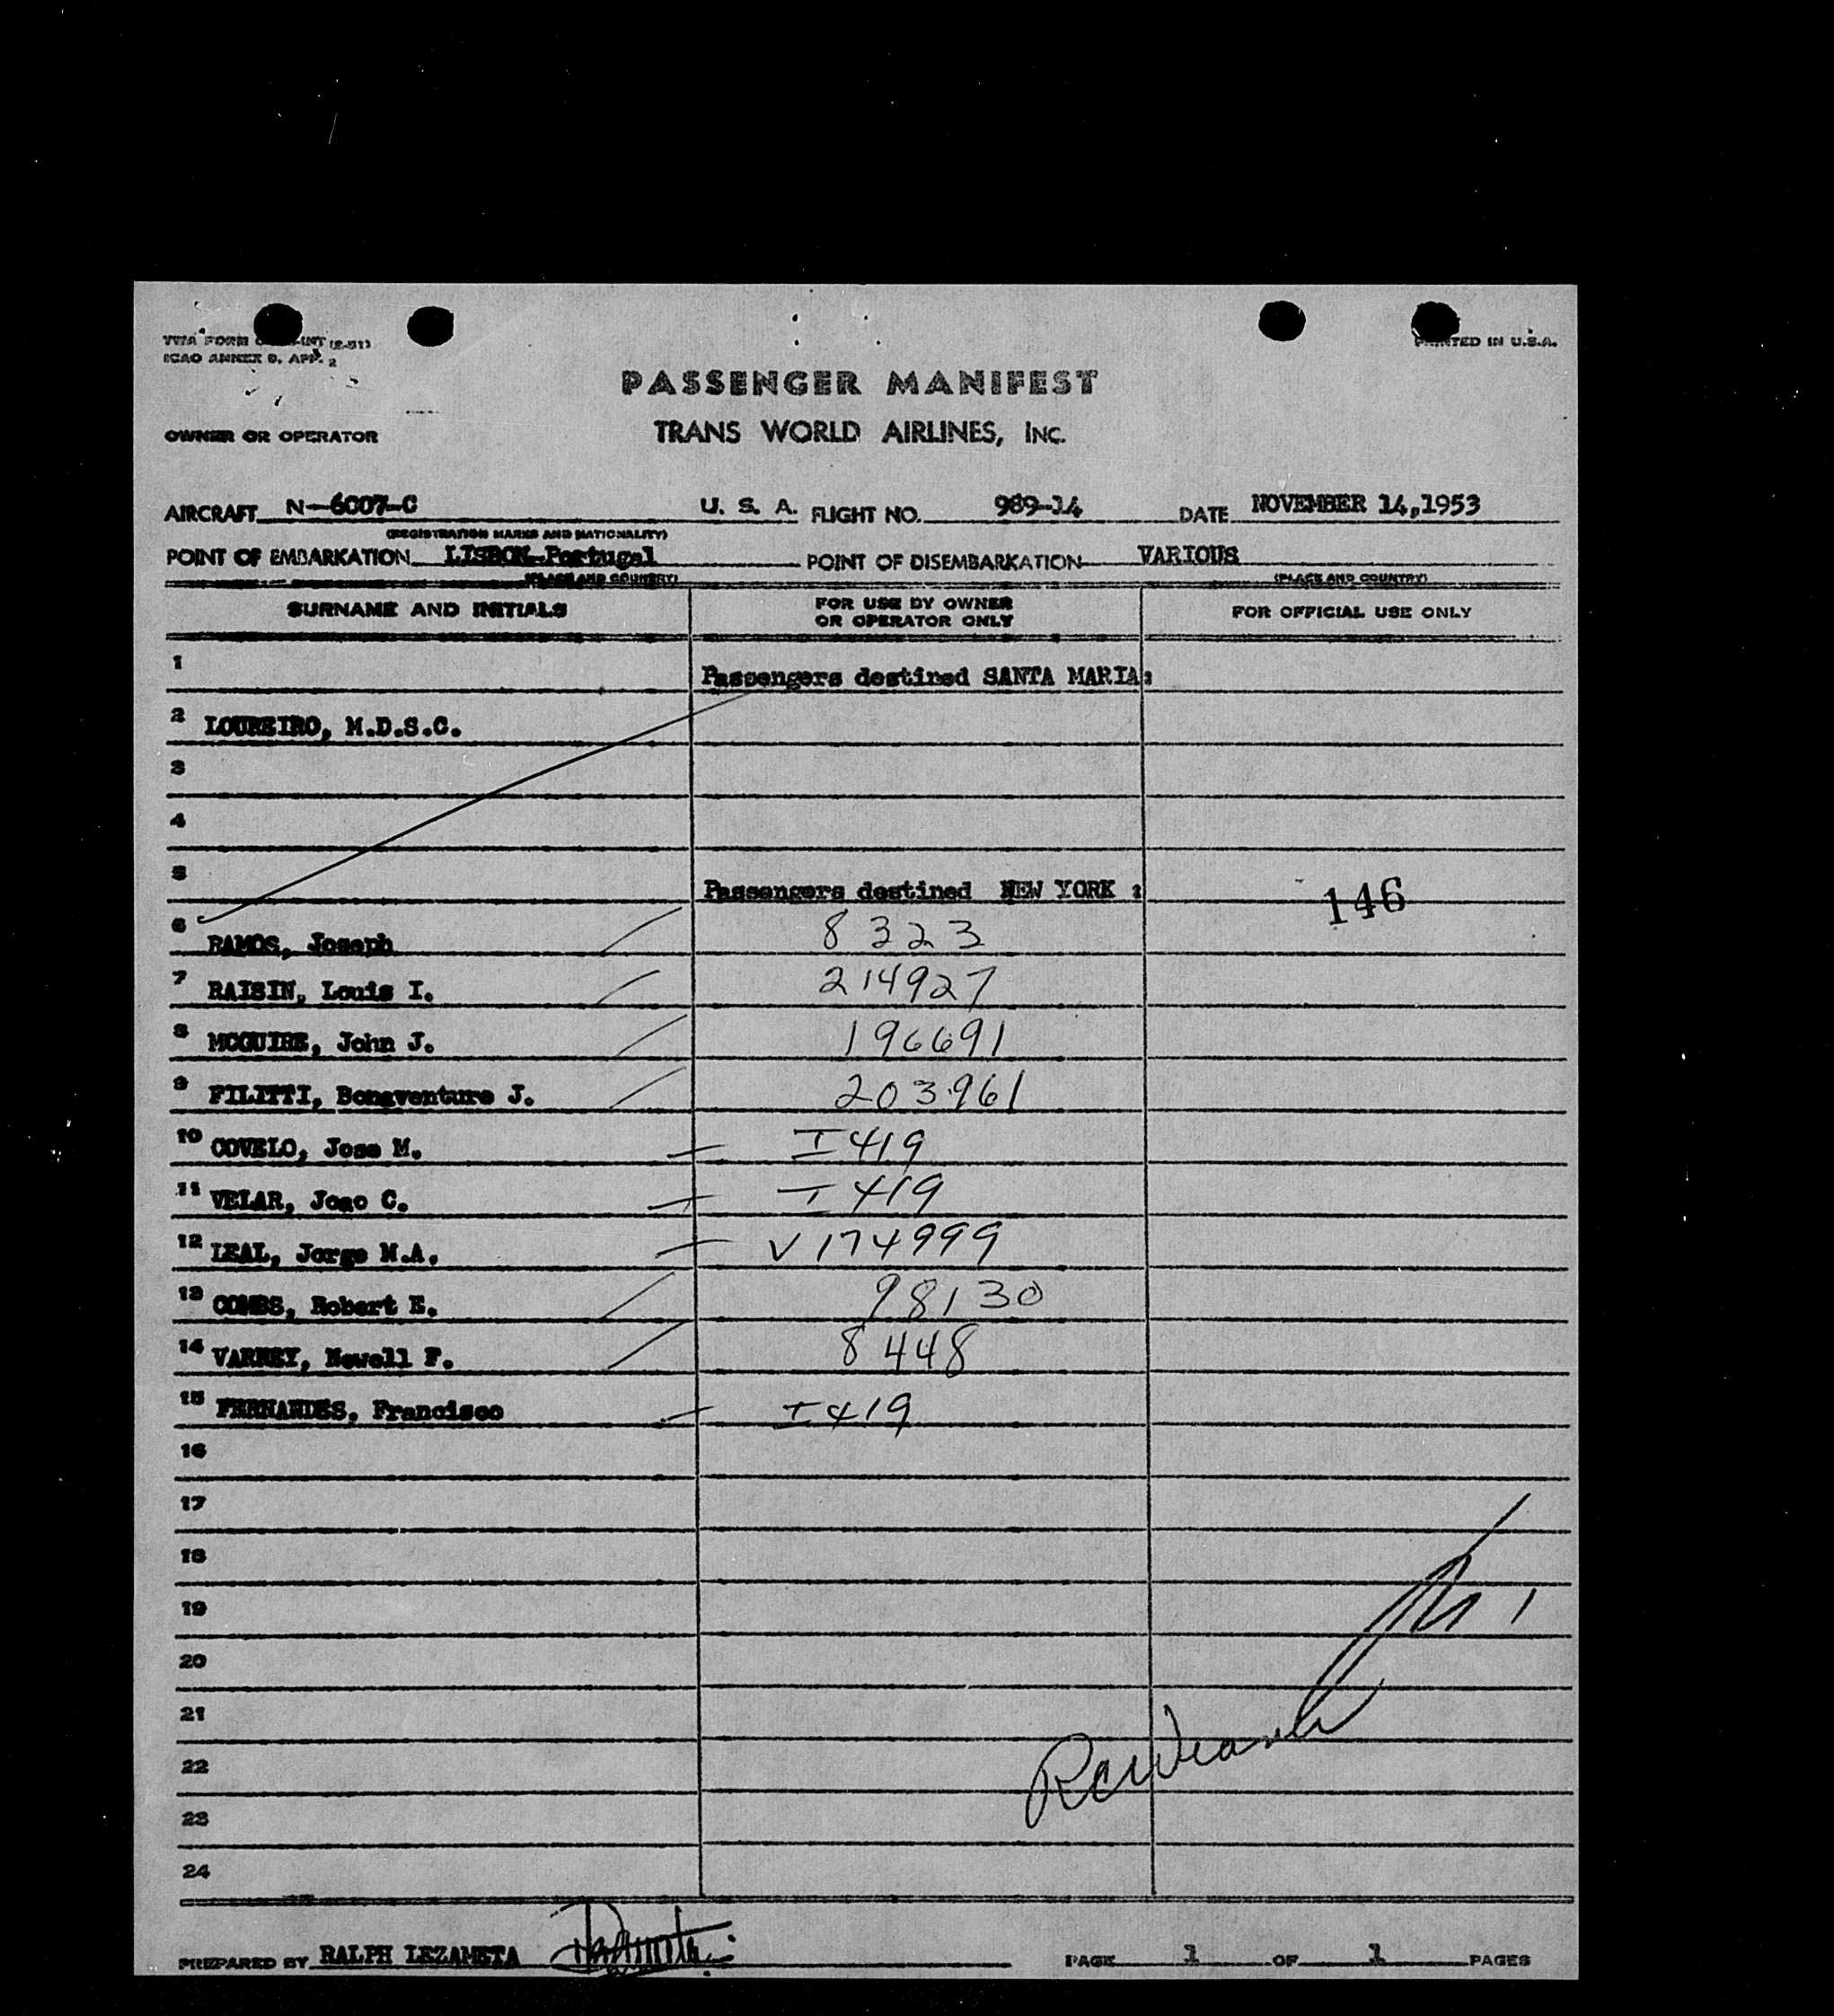 TWA FORM
ICAO ANNEX 9, APP. 2
PRINTED IN U.S.A.
PASSENGER MANIFEST
OWNER OR OPERATOR TRANS WORLD AIRLINES, INC.
AIRCRAFT N-6007-C U. S. A. FLIGHT NO. 989-14 DATE NOVEMBER 14,1953
(REGISTRATION MARKS AND NATIONALITY)
POINT OF EMBARKATION LISBON-Portugal POINT OF DISEMBARKATION VARIOUS
(PLACE AND COUNTRY) (PLACE AND COUNTRY)
SURNAME AND INITIALS FOR USE BY OWNER OR OPERATOR ONLY FOR OFFICIAL USE ONLY
1 Passengers destined SANTA MARIA:
2 LOUREIRO, M.D.S.C.
3
4
5 Passengers destined NEW YORK : 146
6 RAMOS, Joseph 8323
7 RAISIN, Louis I. 214927
8 MCGUIRE, John J. 196691
9 FILITTI, Bonaventure J. 203961
10 COVELO, Jose M. I 419
11 VELAR, Joao C. I 419
12 LEAL, Jorge M.A. V 174999
13 COMBS, Robert E. 98130
14 VARNEY, Newell F. 8448
15 FERNANDES, Francisco I 419
16
17
18
19
20
21
22
23
24
PREPARED BY RALPH LEZAMETA PAGE 1 OF 1 PAGES